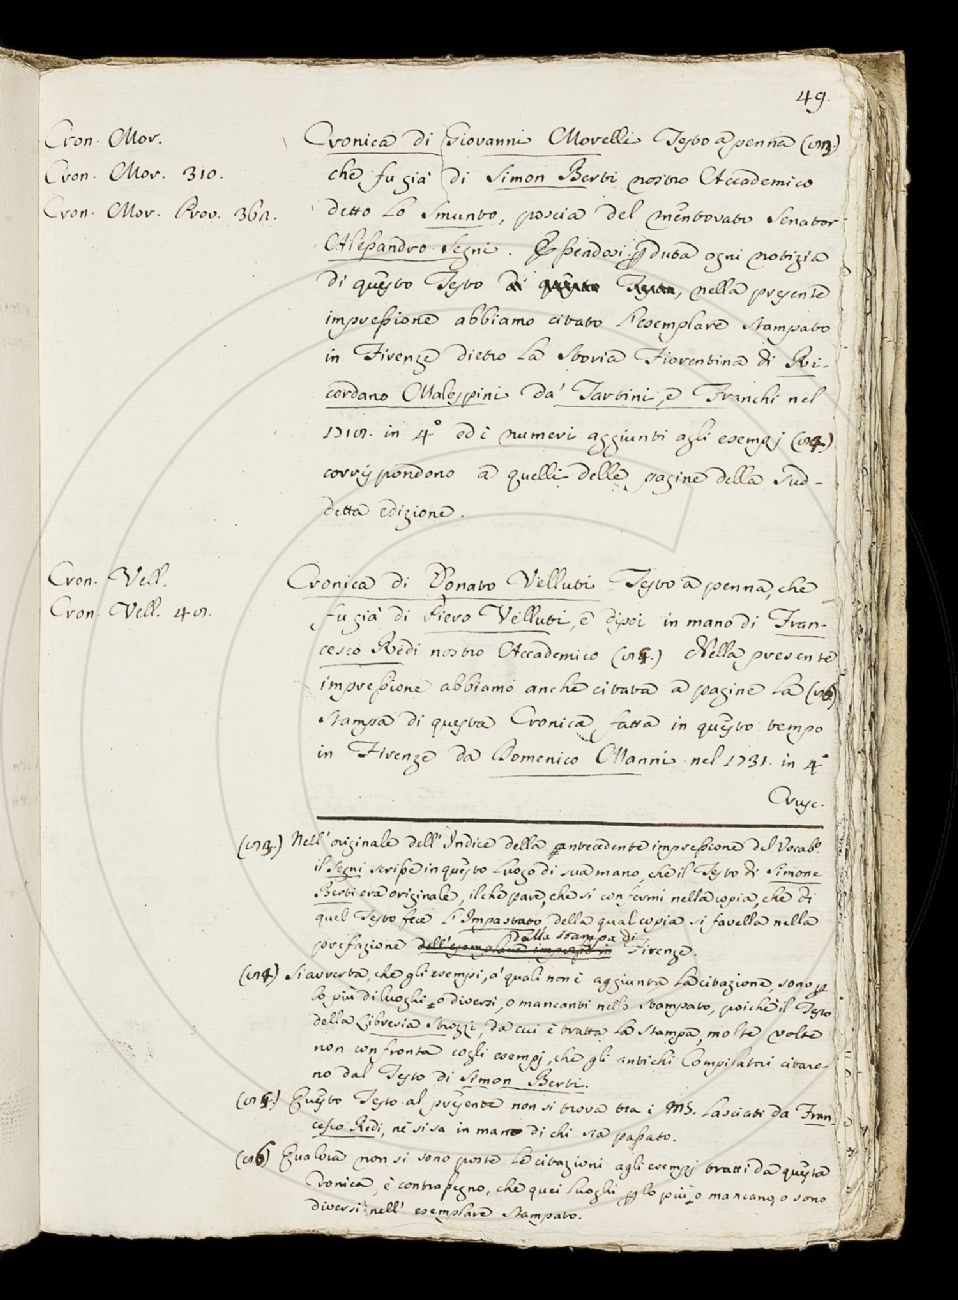 49.
Cron. Mor.
Cron. Mor. 310.
Cron. Mor. Prov. 361.
Cronica di Giovanni Morelli Testo a penna (113.)
che fu già di Simon Berti nostro Accademico
detto lo Smunto, poscia del mentovato Senator
Alessandro Segni. Essendosi pduta ogni notizia
di questo Testo di questo Testo, nella presente
impressione abbiamo citato l'esemplare stampato
in Firenze dietro la Storia Fiorentina di Ri-
cordano Malespini da' Tartini, e Franchi nel
1718. in 4° ed i numeri aggiunti agli esempj (114.)
corrispondono a quelli delle pagine della Sud-
detta edizione.
Cron. Vell.
Cron. Vell. 41.
Cronica di Donato Velluti Testo a penna, che
fu già di Piero Velluti, e dipoi in mano di Fran-
cesco Redi nostro Accademico (115.) Nella presente
impressione abbiamo anche citata a pagine la (116)
stampa di questa Cronica fatta in questo tempo
in Firenze da Domenico Manni nel 1731. in 4°
Crusc.
(113.) Nell'originale dell'Indice della antecedente impressione del Vocab.°
il Segni scrisse in questo luogo di sua mano, che il Testo di Simone
Berti era originale, il che pare, che si confermi nella copia, che di
quel Testo fece l'Impastato, della qual copia si favella nella
dalla stampa di
prefazione dell'esemplare impresso in Firenze.
(114) Si avverta, che gli esempi, a' quali non è aggiunta la citazione, sono p
lo più di luoghi o diversi, o mancanti nello Stampato, poichè il Testo
della Libreria Strozzi, da cui è tratta la Stampa, molte volte
non confronta cogli esempj, che gli antichi Compilatori citaro-
no dal Testo di Simon Berti.
(115.) Questo Testo al presente non si trova tra i MS. lasciati da Fran-
cesco Redi, nè si sa in mano di chi sia passato.
(116) Qualora non si sono poste le citazioni agli esempj tratti da questa
Cronica, è contrassegno, che quei luoghi p lo più o mancano, o sono
diversi nell'esemplare stampato.